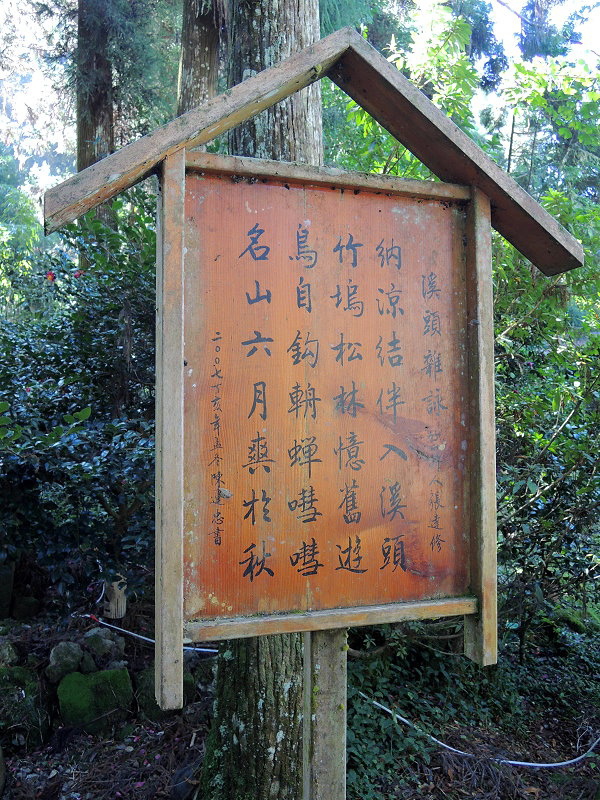 溪頭雜詠 人張達修
納涼結伴入溪頭
竹塢松林憶舊遊
鳥自鈎輈蟬嘒嘒
名山六月爽於秋
二〇〇七丁亥年孟春陳建忠書